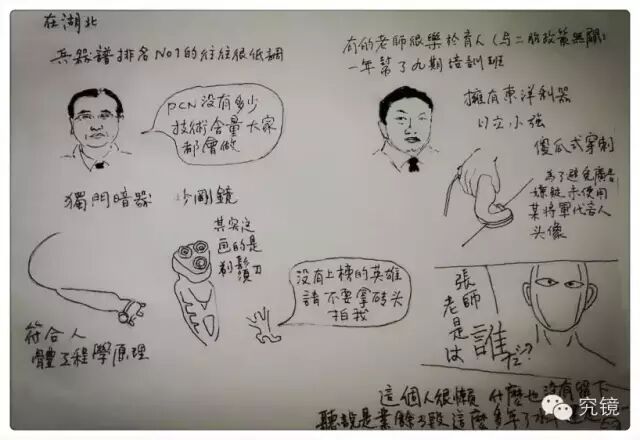 在湖北
兵器譜排名No1的往往很低調
有的老師很樂於育人(与二胎政策無關)
一年幫了九期培訓班
PCN没有多少
技術含量大家
都會做
擁有東洋利器
日立小強
傻瓜式穿刺
為了避免廣告
嫌疑未使用
某将軍代言人
头像
獨門暗器
沙剛鏡
其实这
画的是
剃鬚
须刀
没有上榜的英雄
請不要拿砖头
拍我
符合人
體工程學原理
張老師是
誰だ?
這個人很懶 什麼也没有留下
聽說是業餘
這麼多年了
究镜